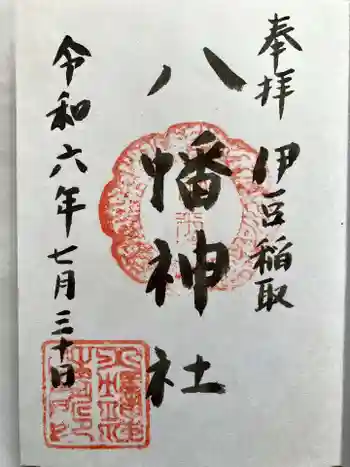 奉拝 伊豆稲取
八幡神社
令和六年七月三十日